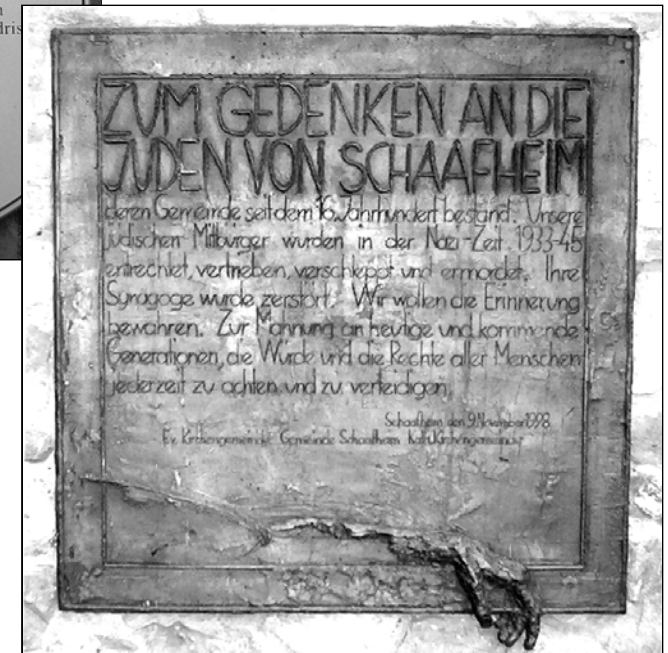 dris
ZUM GEDENKEN AN DIE
JUDEN VON SCHAAFHEIM
deren Gemeinde seit dem 16. Jahrhundert bestand. Unsere
jüdischen Mitbürger wurden in der Nazi-Zeit 1933-45
entrechtet, vertrieben, verschleppt und ermordet. Ihre
Synagoge wurde zerstört. Wir wollen die Erinnerung
bewahren. Zur Mahnung an heutige und kommende
Generationen, die Würde und die Rechte aller Menschen
jederzeit zu achten und zu verteidigen.
Schaafheim den 9. November 1998
Ev. Kirchengemeinde Gemeinde Schaafheim Kath. Kirchengemeinde